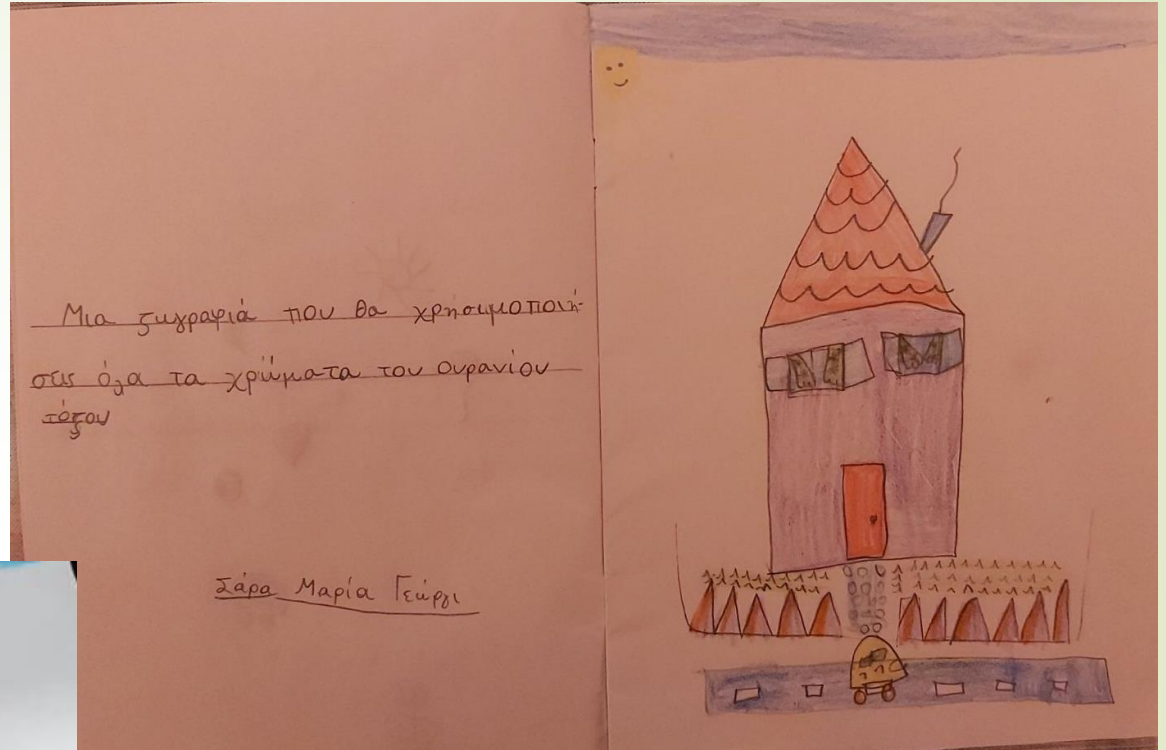 Μια ζωγραφιά που θα χρήσιμοποιή-
σεις όλα τα χρώματα του Ουρανίου
τόξου
Σάρα Μαρία Γεώργι